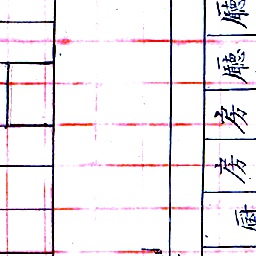 廳
廳
房
房